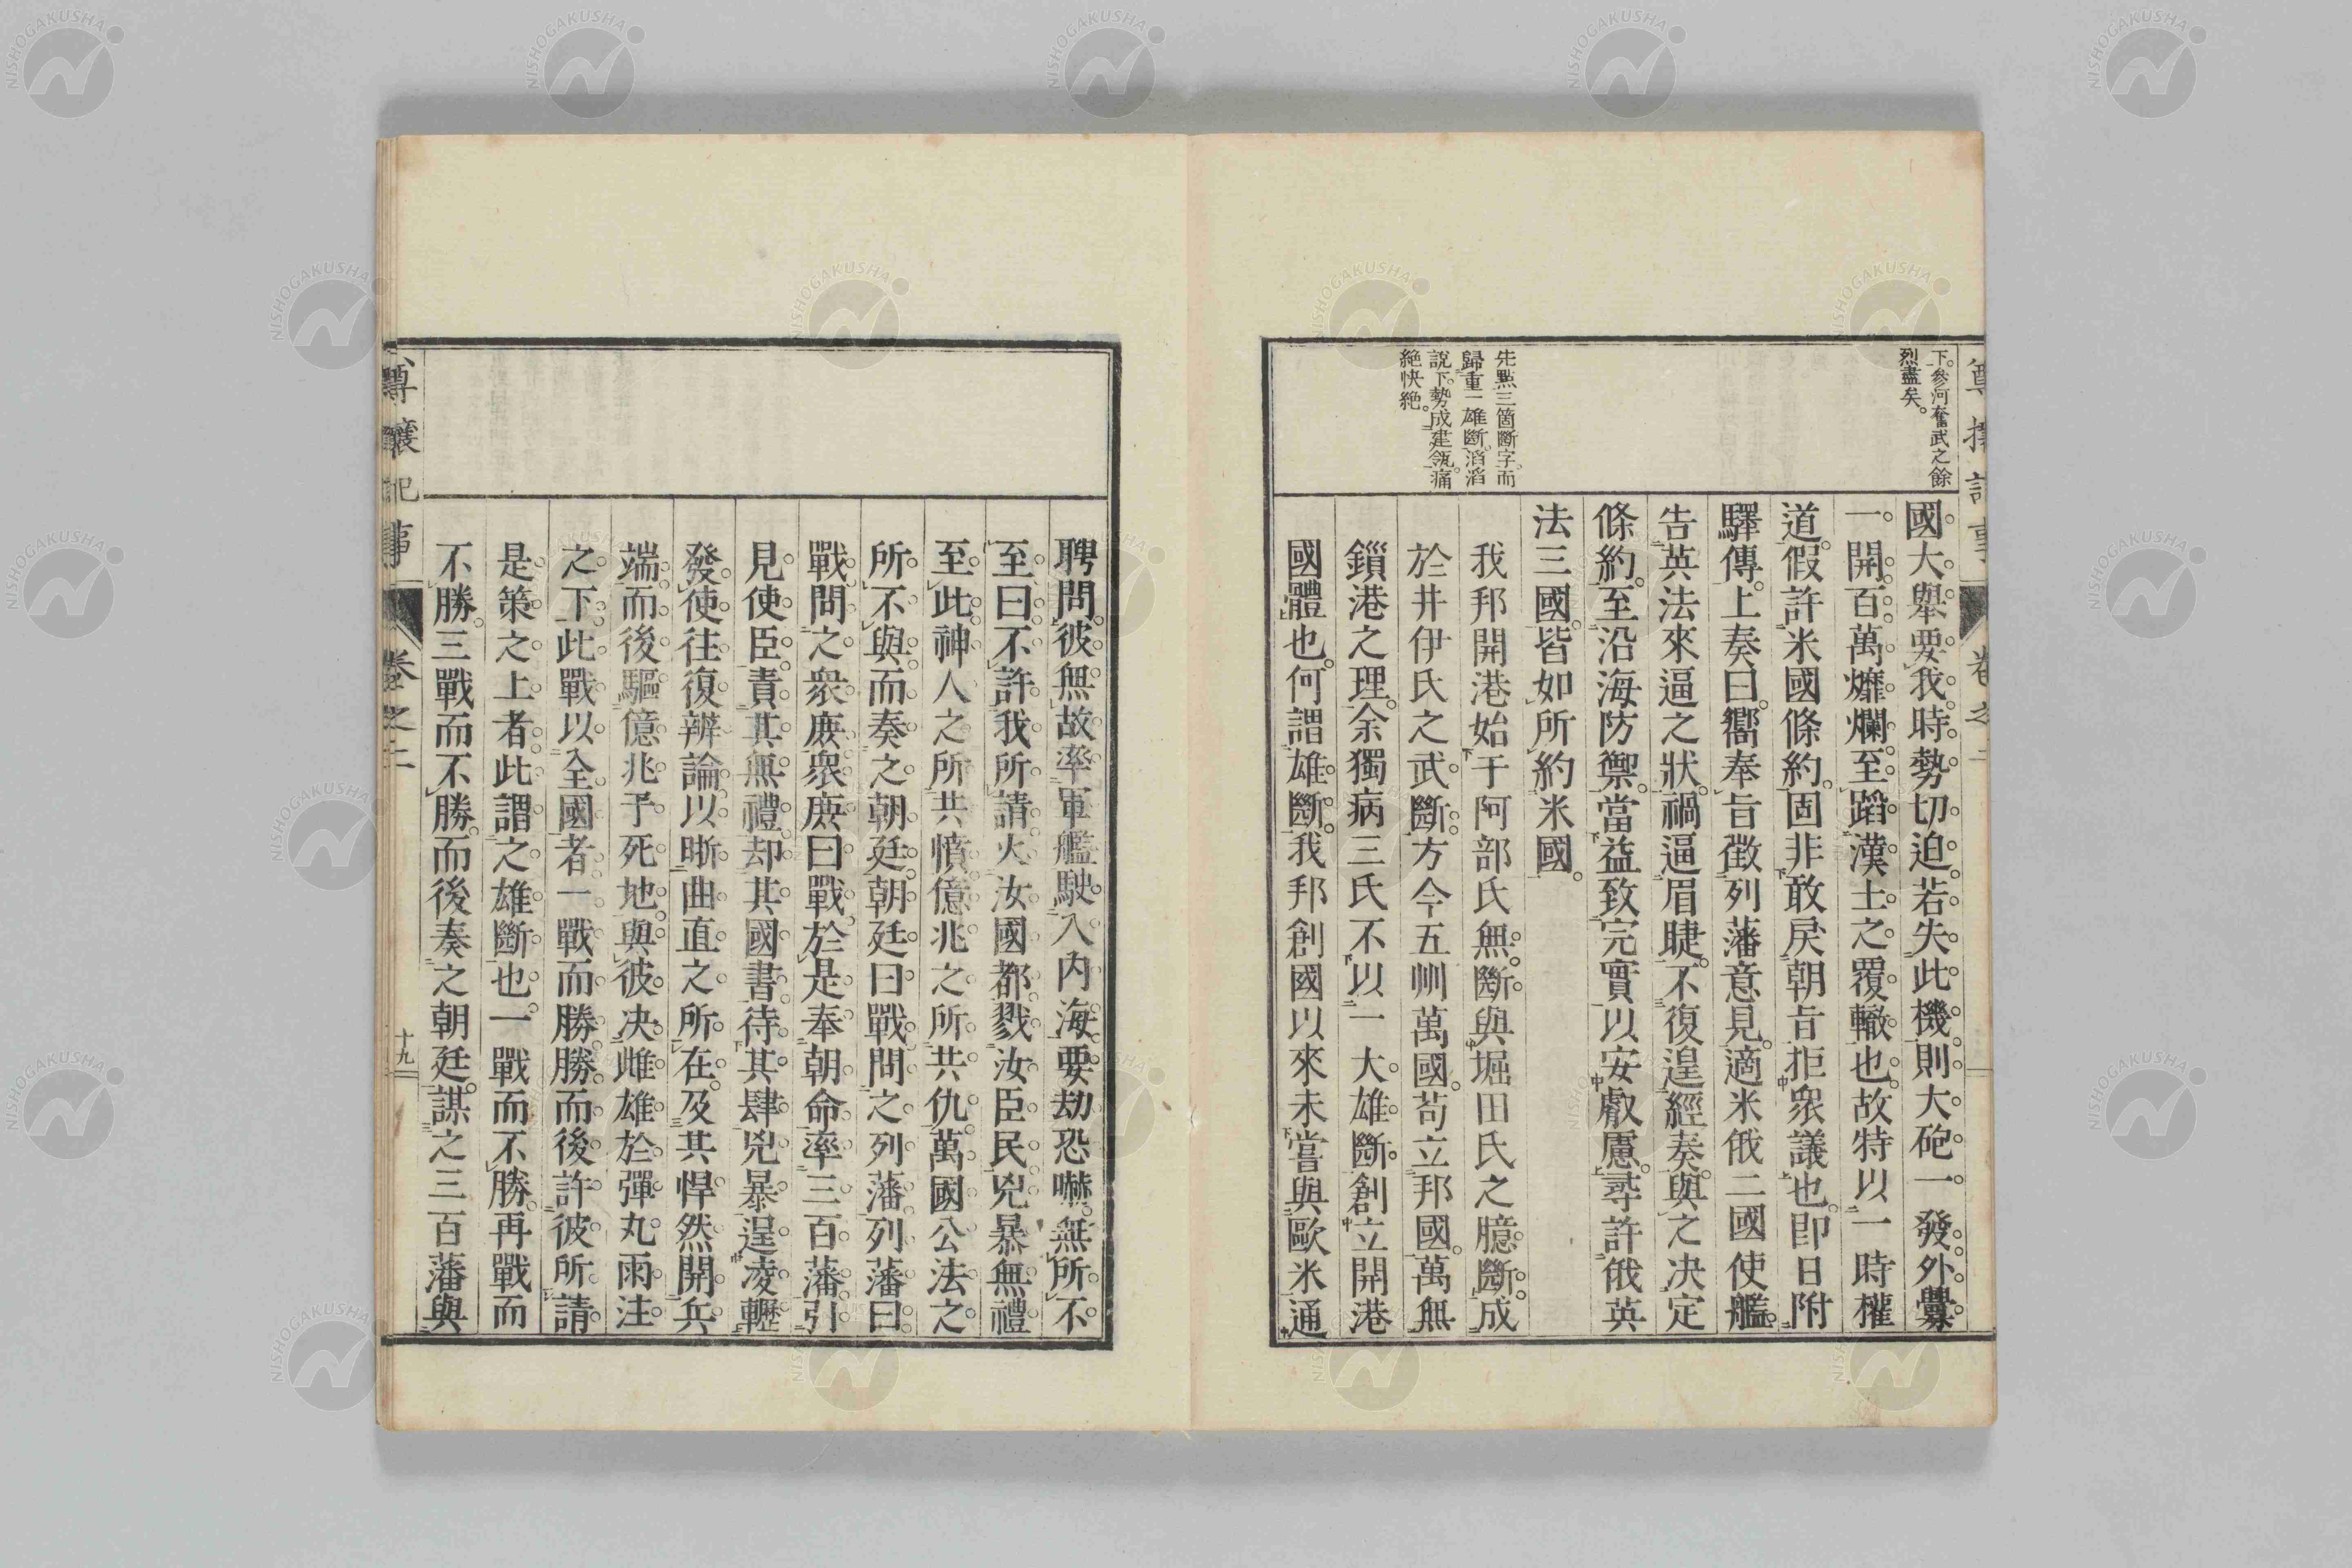 下。參河奮武之餘
烈盡矣。
先點三箇斷字。而
歸重一雄斷。滔滔
說下。勢成建瓴。痛
絕快絕。
國。大擧要我。時勢切迫。若失此機。則大砲一發。外釁
一開。百萬爛。至蹈漢土之覆轍也。故特以一時權
道。假許米國條約。固非敢戾朝旨拒衆議也。卽日附
驛傳。上奏曰。嚮奉旨徵列藩意見。適米俄二國使艦。
告英法來逼之狀。禍逼眉睫。不復遑經奏。與之决定
條約。至沿海防禦。當益致完實以安叡慮。尋許俄英
法三國。皆如所約米國。
我邦開港始于阿部氏無斷。與堀田氏之臆斷。成
於井伊氏之武斷。方今五洲萬國。苟立邦國。萬無
鎖港之理。余獨病三氏不以一大雄斷。創立開港
國體也。何謂雄斷。我邦創國以來未嘗與歐米通
聘問。彼無故率軍艦駛入內海。要劫恐嚇。無所不
至。曰。不許我所請。火汝國都。戮汝臣民。兇暴無禮
至此。神人之所共憤。億兆之所共仇。萬國公法之
所不與。而奏之朝廷。朝廷曰戰。問之列藩。列藩曰
戰。問之衆庻。衆庻曰戰。於是奉朝命。率三百藩。引
見使臣。責其無禮。却其國書。待其肆兇暴。逞凌轢。
發使往復辨論。以晰曲直之所在。及其悍然開兵
端。而後驅億兆予死地。與彼决雌雄於彈丸雨注
之下。此戰以全國者。一戰而勝。勝而後許彼所請。
是策之上者。此謂之雄斷也。一戰而不勝。再戰而
不勝。三戰而不勝。而後奏之朝廷。謀之三百藩與
尊攘記事
卷之二
十九
NISHOGAKUSHA